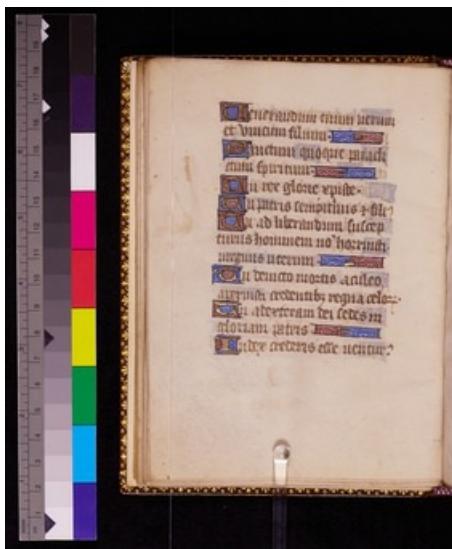 Uenerandum tuum uerum
et vnicum filium.
Sanctum quoque paracli
tum spiritum.
Tu rex glorie xpiste.
Tu patris sempitnus es fili'
Tu ad liberandum suscep
turus hominem no' horruisti
uirginis uterum
Tu deuicto mortis aculeo
aperuisti credentib' regna celor'
Tu ad dexteram dei sedes in
gloriam patris
Iudex crederis esse uentur'